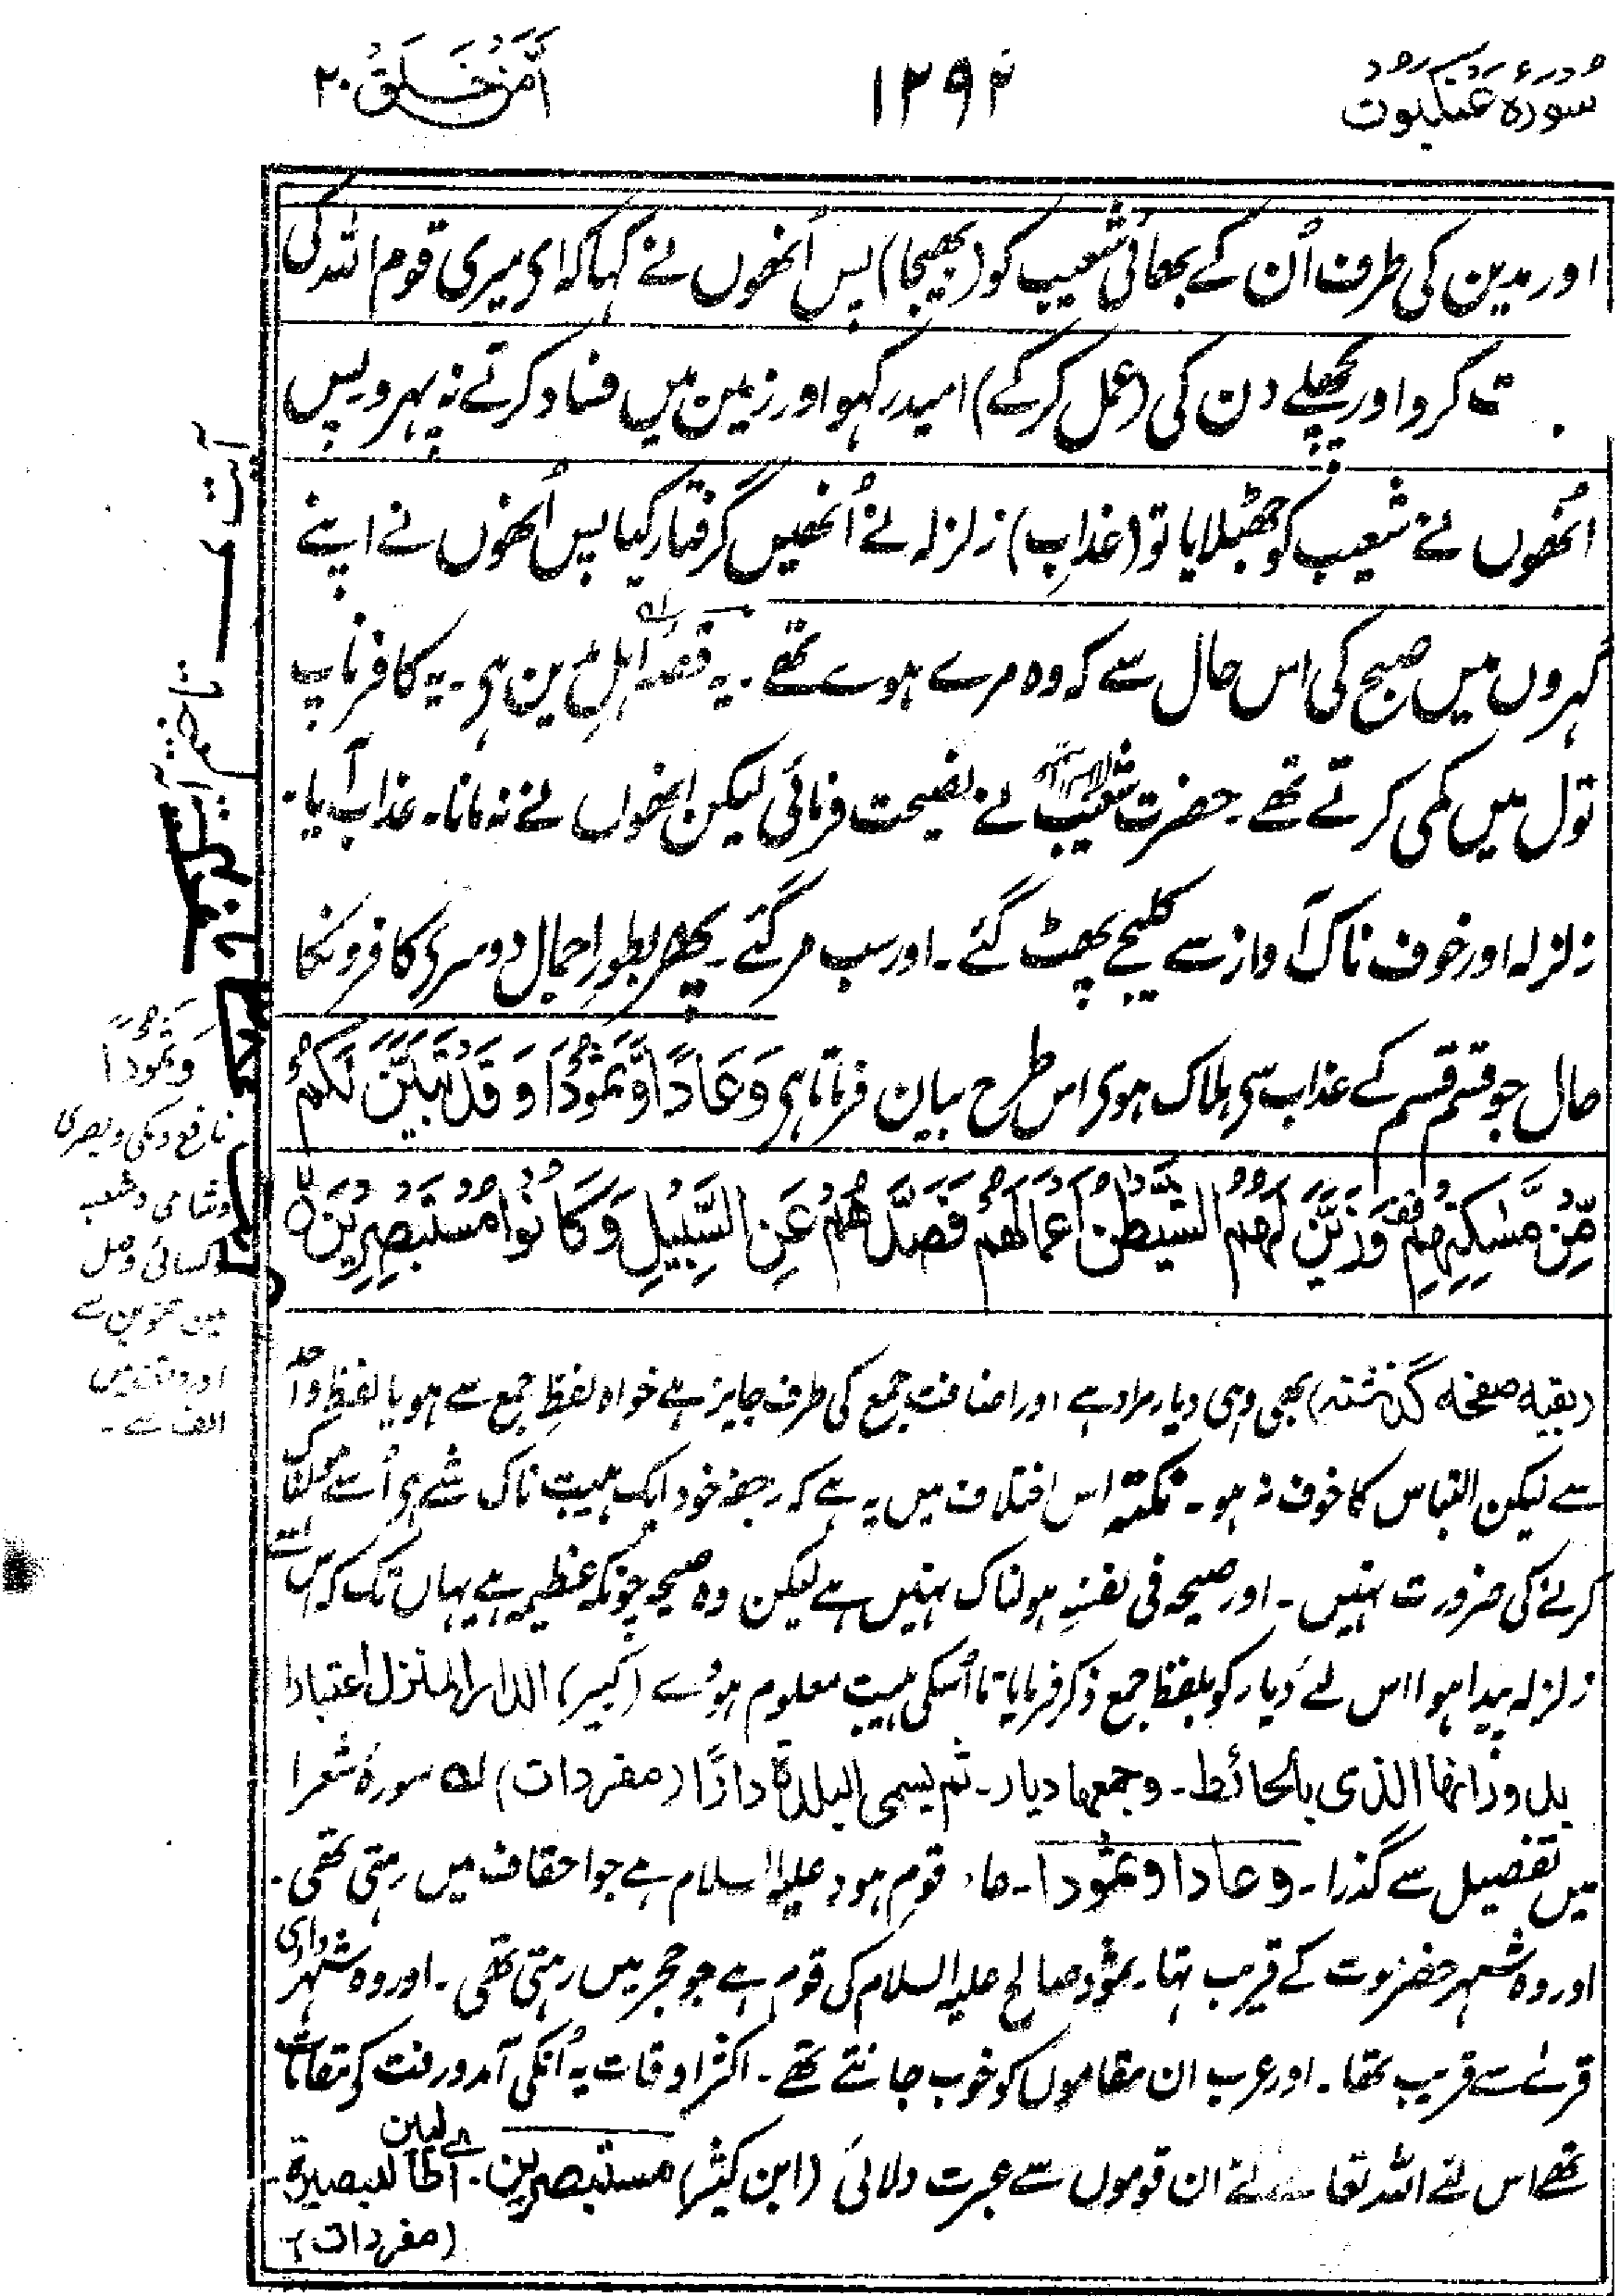 سورۂ عنکبوت
۱۲۹۴
اَمَّنْ خَلَقَ ۲۰
اور مدین کی طرف اُن کے بھائی شعیب کو (بھیجا) پس اُنھوں نے کہا کہ ای میری قوم اللہ کی
ت کرو اور پچھلے دن کی (عمل کرکے) امید رکہو اور زمین میں فساد کرتے نہ پہرو ۔ پس
اُنھوں نے شعیب کو جھٹلایا تو (عذابِ) زلزلہ نے اُنھیں گرفتار کیا پس اُنھوں نے اپنے
گہروں میں صبح کی اس حال سے کہ وہ مرے ہوے تھے ۔ یہ قصۂ اہلِ مدین ہی ۔ یہ کافر ناپ
تول میں کمی کرتے تھے ۔ حضرت شعیب علیہ السلام نے نصیحت فرمائی لیکن انھوں نے نہ مانا ۔ عذاب آیا ۔
زلزلہ اور خوف ناک آواز سے کلیجے پھٹ گئے ۔ اور سب مر گئے ۔ پھر بطورِ اجمال دوسری کافرونکا
حال جو قسم قسم کے عذاب سی ہلاک ہوی اس طرح بیان فرماتا ہی وَعَادًا وَّثَمُوْدَا۟ وَقَدْ تَّبَيَّنَ لَكُمْ
مِّنْ مَّسٰكِنِهِمْ وقفۃ وَزَيَّنَ لَهُمُ الشَّيْطٰنُ اَعْمَالَهُمْ فَصَدَّهُمْ عَنِ السَّبِيْلِ وَكَانُوْا مُسْتَبْصِرِيْنَ ۙ
وَثَمُوْدًا
نافع و مکی و بصری
و شامی و
و کسائی وصل
میں تنوین سے
اور وقف میں
الف سے ۔
(بقیہ صفحہ گذشتہ) بھی وہی دیار مراد ہے اور اضافت جمع کی طرف جایز ہے خواہ لفظِ جمع سے ہو یا لفظِ واحد
سے لیکن التباس کا خوف نہ ہو ۔ نکتہ اس اختلاف میں یہ ہے کہ رجفہ خود ایک ہیبت ناک شے ہی اُسے ہولناک
کرنے کی ضرورت نہیں ۔ اور صیحہ فی نفسہٖ ہولناک نہیں ہے لیکن وہ صیحہ چونکہ عظیمہ ہے یہاں تک کہ اس سے
زلزلہ پیدا ہوا اس لے دیار کو بلفظ جمع ذکر فرمایا تا اُسکی ہیبت معلوم ہوے (کبیر) الدار المنزل اعتبارا
بدورانھا الذی بالحائط ۔ وجمعھا دیار ۔ ثم یسمی البلدۃ دارًا (مفردات) لہ سورۂ شعرا
میں تفصیل سے گذرا ۔ وعادا وثمودا ۔ عاد قومِ ہود علیہ السلام ہے جو احقاف میں رہتی تھی ۔
اور وہ شہر حضرموت کے قریب تہا ۔ ثمود صالح علیہ السلام کی قوم ہے جو حجر میں رہتی تھی ۔ اور وہ شہر وادی
قرے سے قریب تھا ۔ اور عرب ان مقاموں کو خوب جانتے تھے ۔ اکثر اوقات یہ اُنکی آمد و رفت کی مقامات
تھے اس لئے اللہ تعالے نے ان قوموں سے عبرت دلائی (ابن کثیر) مستبصرین ۔ اے طالبین للبصیرۃ ۔
(مفردات) ۔